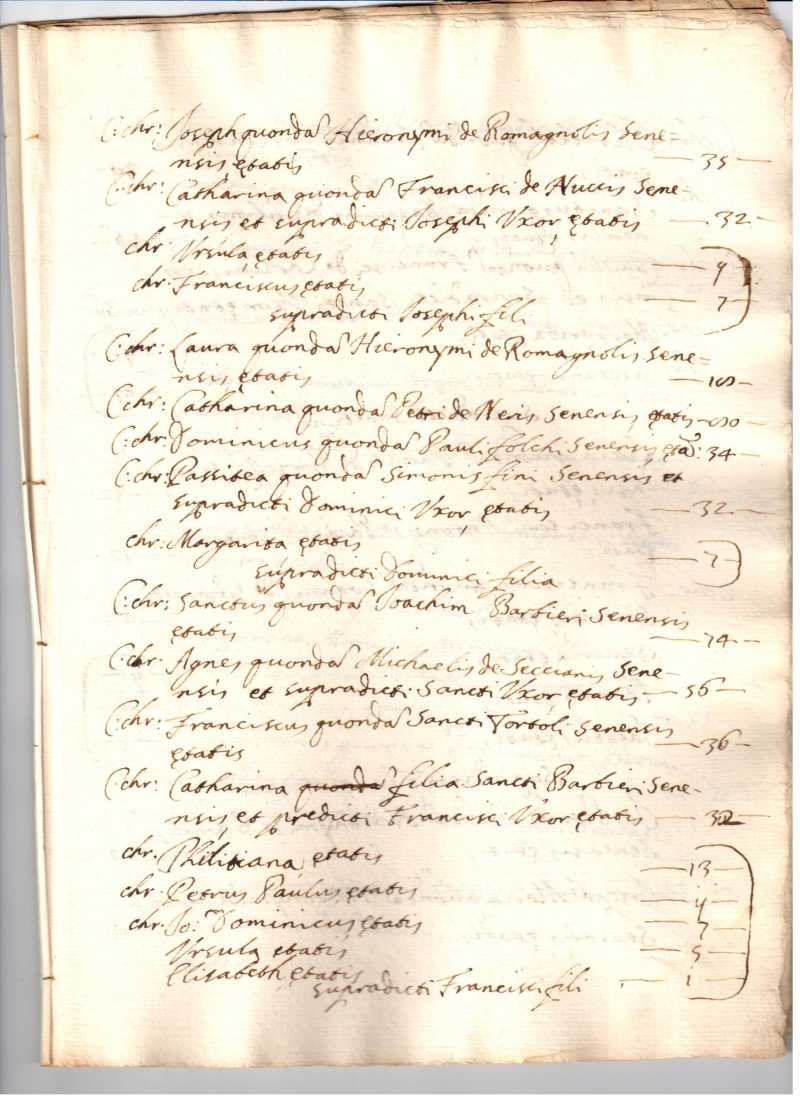 C: chr: Joseph quonda͂ Hieronymi de Romagnolis Sene=
nsis ętatis — 35
C: chr: Catharina quonda͂ Francisci de Nuccis Sene-
nsis et supradicti Josephi Vxor ętatis — 32 -
chr Vrsula ętatis — 9
chr: Franciscus ętatis — 7
supradicti Josephi fili
C: chr: Laura quonda͂ Hieronymi de Romagnolis Sene=
nsis ętatis
C: chr: Catharina quonda͂ Petri de Neris Senensis ętatis
C: chr: Dominicus quonda͂ Pauli folchi Senensis ęta: 34 -
C: chr: Passitea quonda͂ Simonis fini Senensis et
supradicti Dominici Vxor ętatis — 32 -
chr: Margarita ętatis — 7
supradicti Dominici filia
C: chr: Sanctus quonda͂ Joachim Barbieri Senensis
ętatis — 74 -
C: chr. Agnes quonda͂ Michaelis de Seccianis Sene=
nsis et supradicti Sancti Vxor ętatis — 56 -
C: chr: Franciscus quonda͂ Sancti Tortoli Senensis
ętatis — 36 -
C: chr: Catharina quonda͂ filia Sancti Barbieri Sene-
nsis et predicti Francisci Vxor ętatis
chr. Philitiana ętatis — 13 -
chr. Petrus Paulus ętatis
chr. Jo: Dominicus ętatis — 7
Vrsula ętatis — 5
Elisabeth ętatis — 1
supradicti Francisci fili